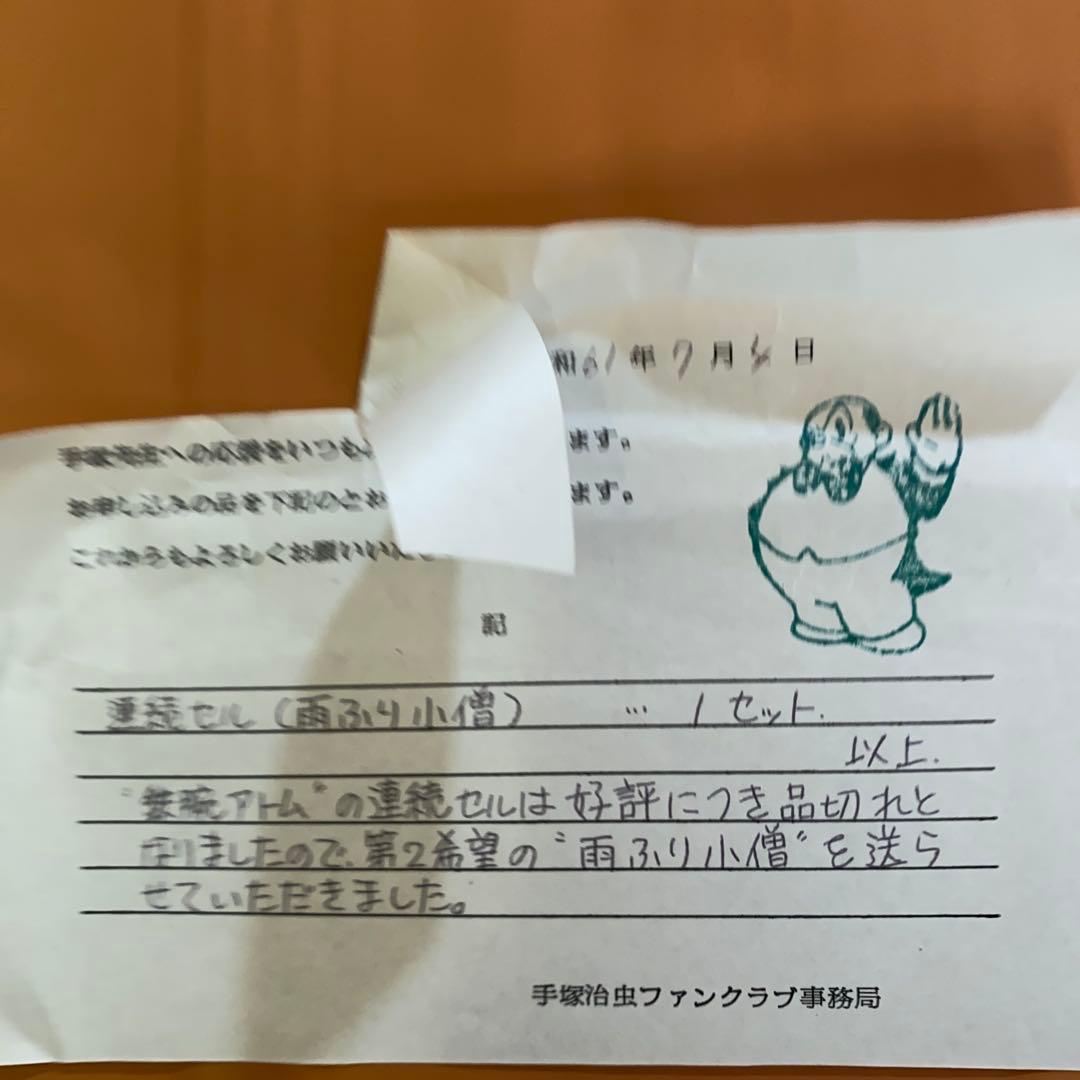 和61年7月 日
手塚先生への応援をいつも ます。
お申し込みの品を下記のとお ます。
これからもよろしくお願いいたし
記
連続セル(雨ふり小僧) … 1セット.
以上.
"鉄腕アトム"の連続セルは好評につき品切れと
なりましたので、第2希望の"雨ふり小僧"を送ら
せていただきました。
手塚治虫ファンクラブ事務局